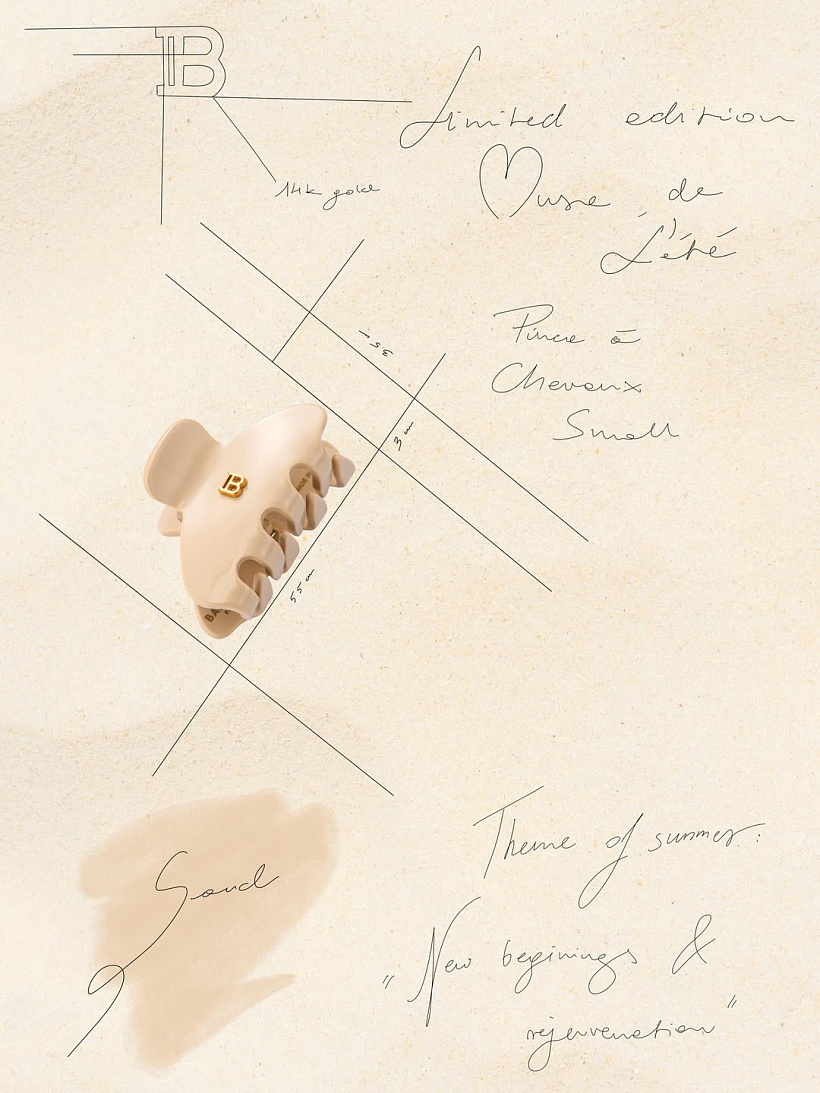 B
14k gold
Limited edition
Muse de
L'été
Pince à
Chevaux
Small
3 cm
B
Sand
Theme of summer:
„New beginings &
rejenvenation"